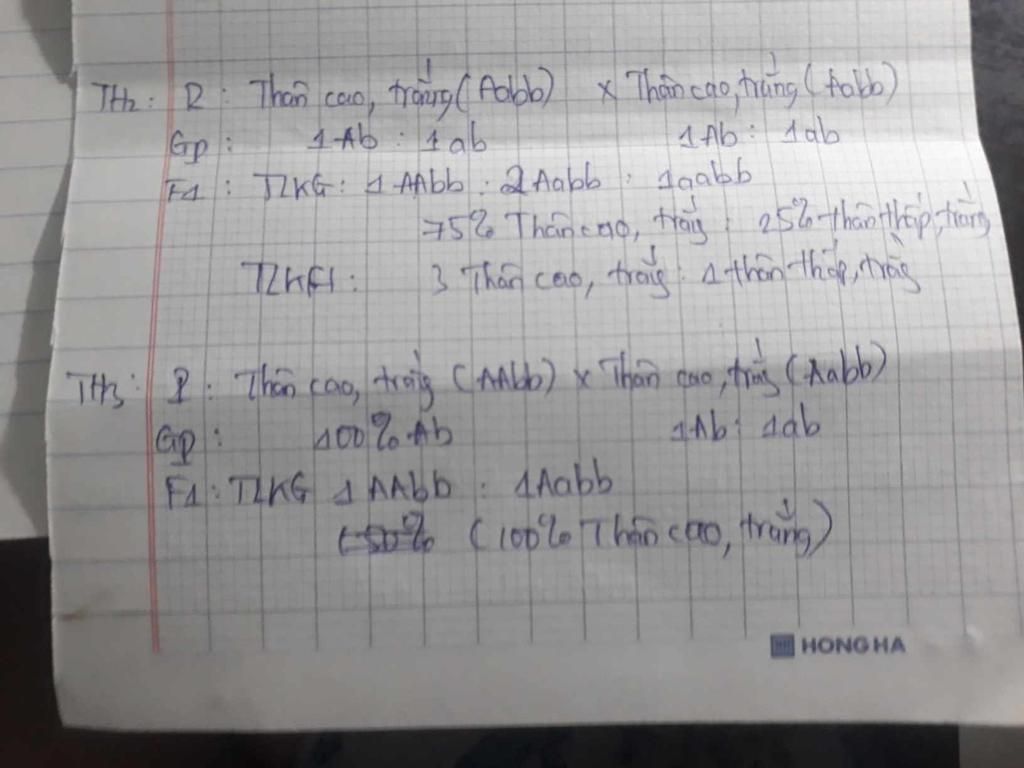 TH2: P: Thân cao, trắng (Aabb) x Thân cao, trắng (Aabb)
Gp: 1Ab : 1ab 1Ab : 1ab
F1: TLKG: 1 AAbb : 2Aabb : 1aabb
75% Thân cao, trắng : 25% thân thấp, trắng
TLKH: 3 Thân cao, trắng : 1 thân thấp, trắng
TH3: P: Thân cao, trắng (AAbb) x Thân cao, trắng (Aabb)
Gp: 100% Ab 1Ab : 1ab
F1: TLKG 1 AAbb : 1Aabb
(100% Thân cao, trắng)
HONG HA